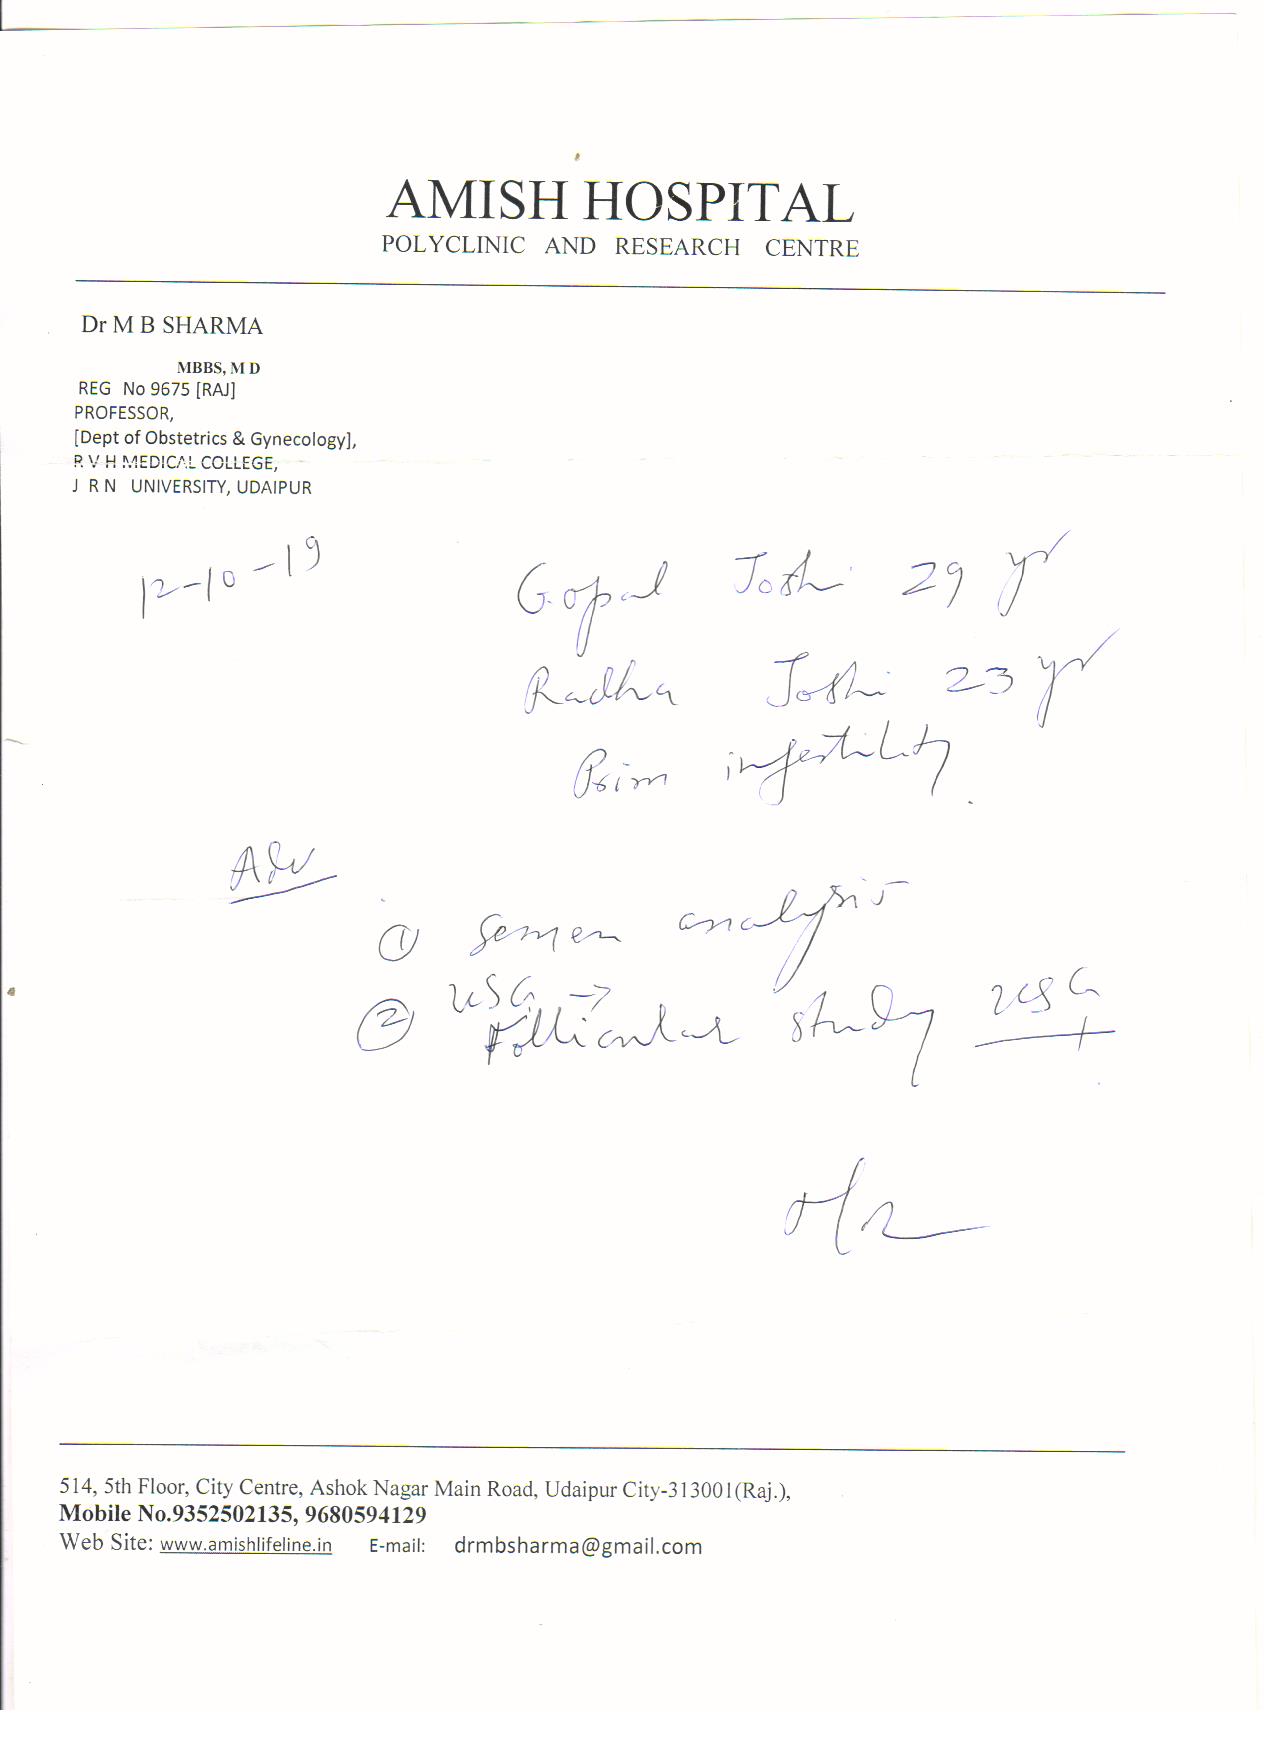 AMISH HOSPITAL
POLYCLINIC AND RESEARCH CENTRE
Dr M B SHARMA
MBBS, M D
REG No 9675 [RAJ]
PROFESSOR,
[Dept of Obstetrics & Gynecology],
R V H MEDICAL COLLEGE,
J R N UNIVERSITY, UDAIPUR
12-10-19
Gopal Joshi 29 yr
Radha Joshi 23 yr
Prim infertility
Adv
① Semen analysis
② USG →
Follicular study USG
514, 5th Floor, City Centre, Ashok Nagar Main Road, Udaipur City-313001(Raj.),
Mobile No.9352502135, 9680594129
Web Site: www.amishlifeline.in E-mail: drmbsharma@gmail.com